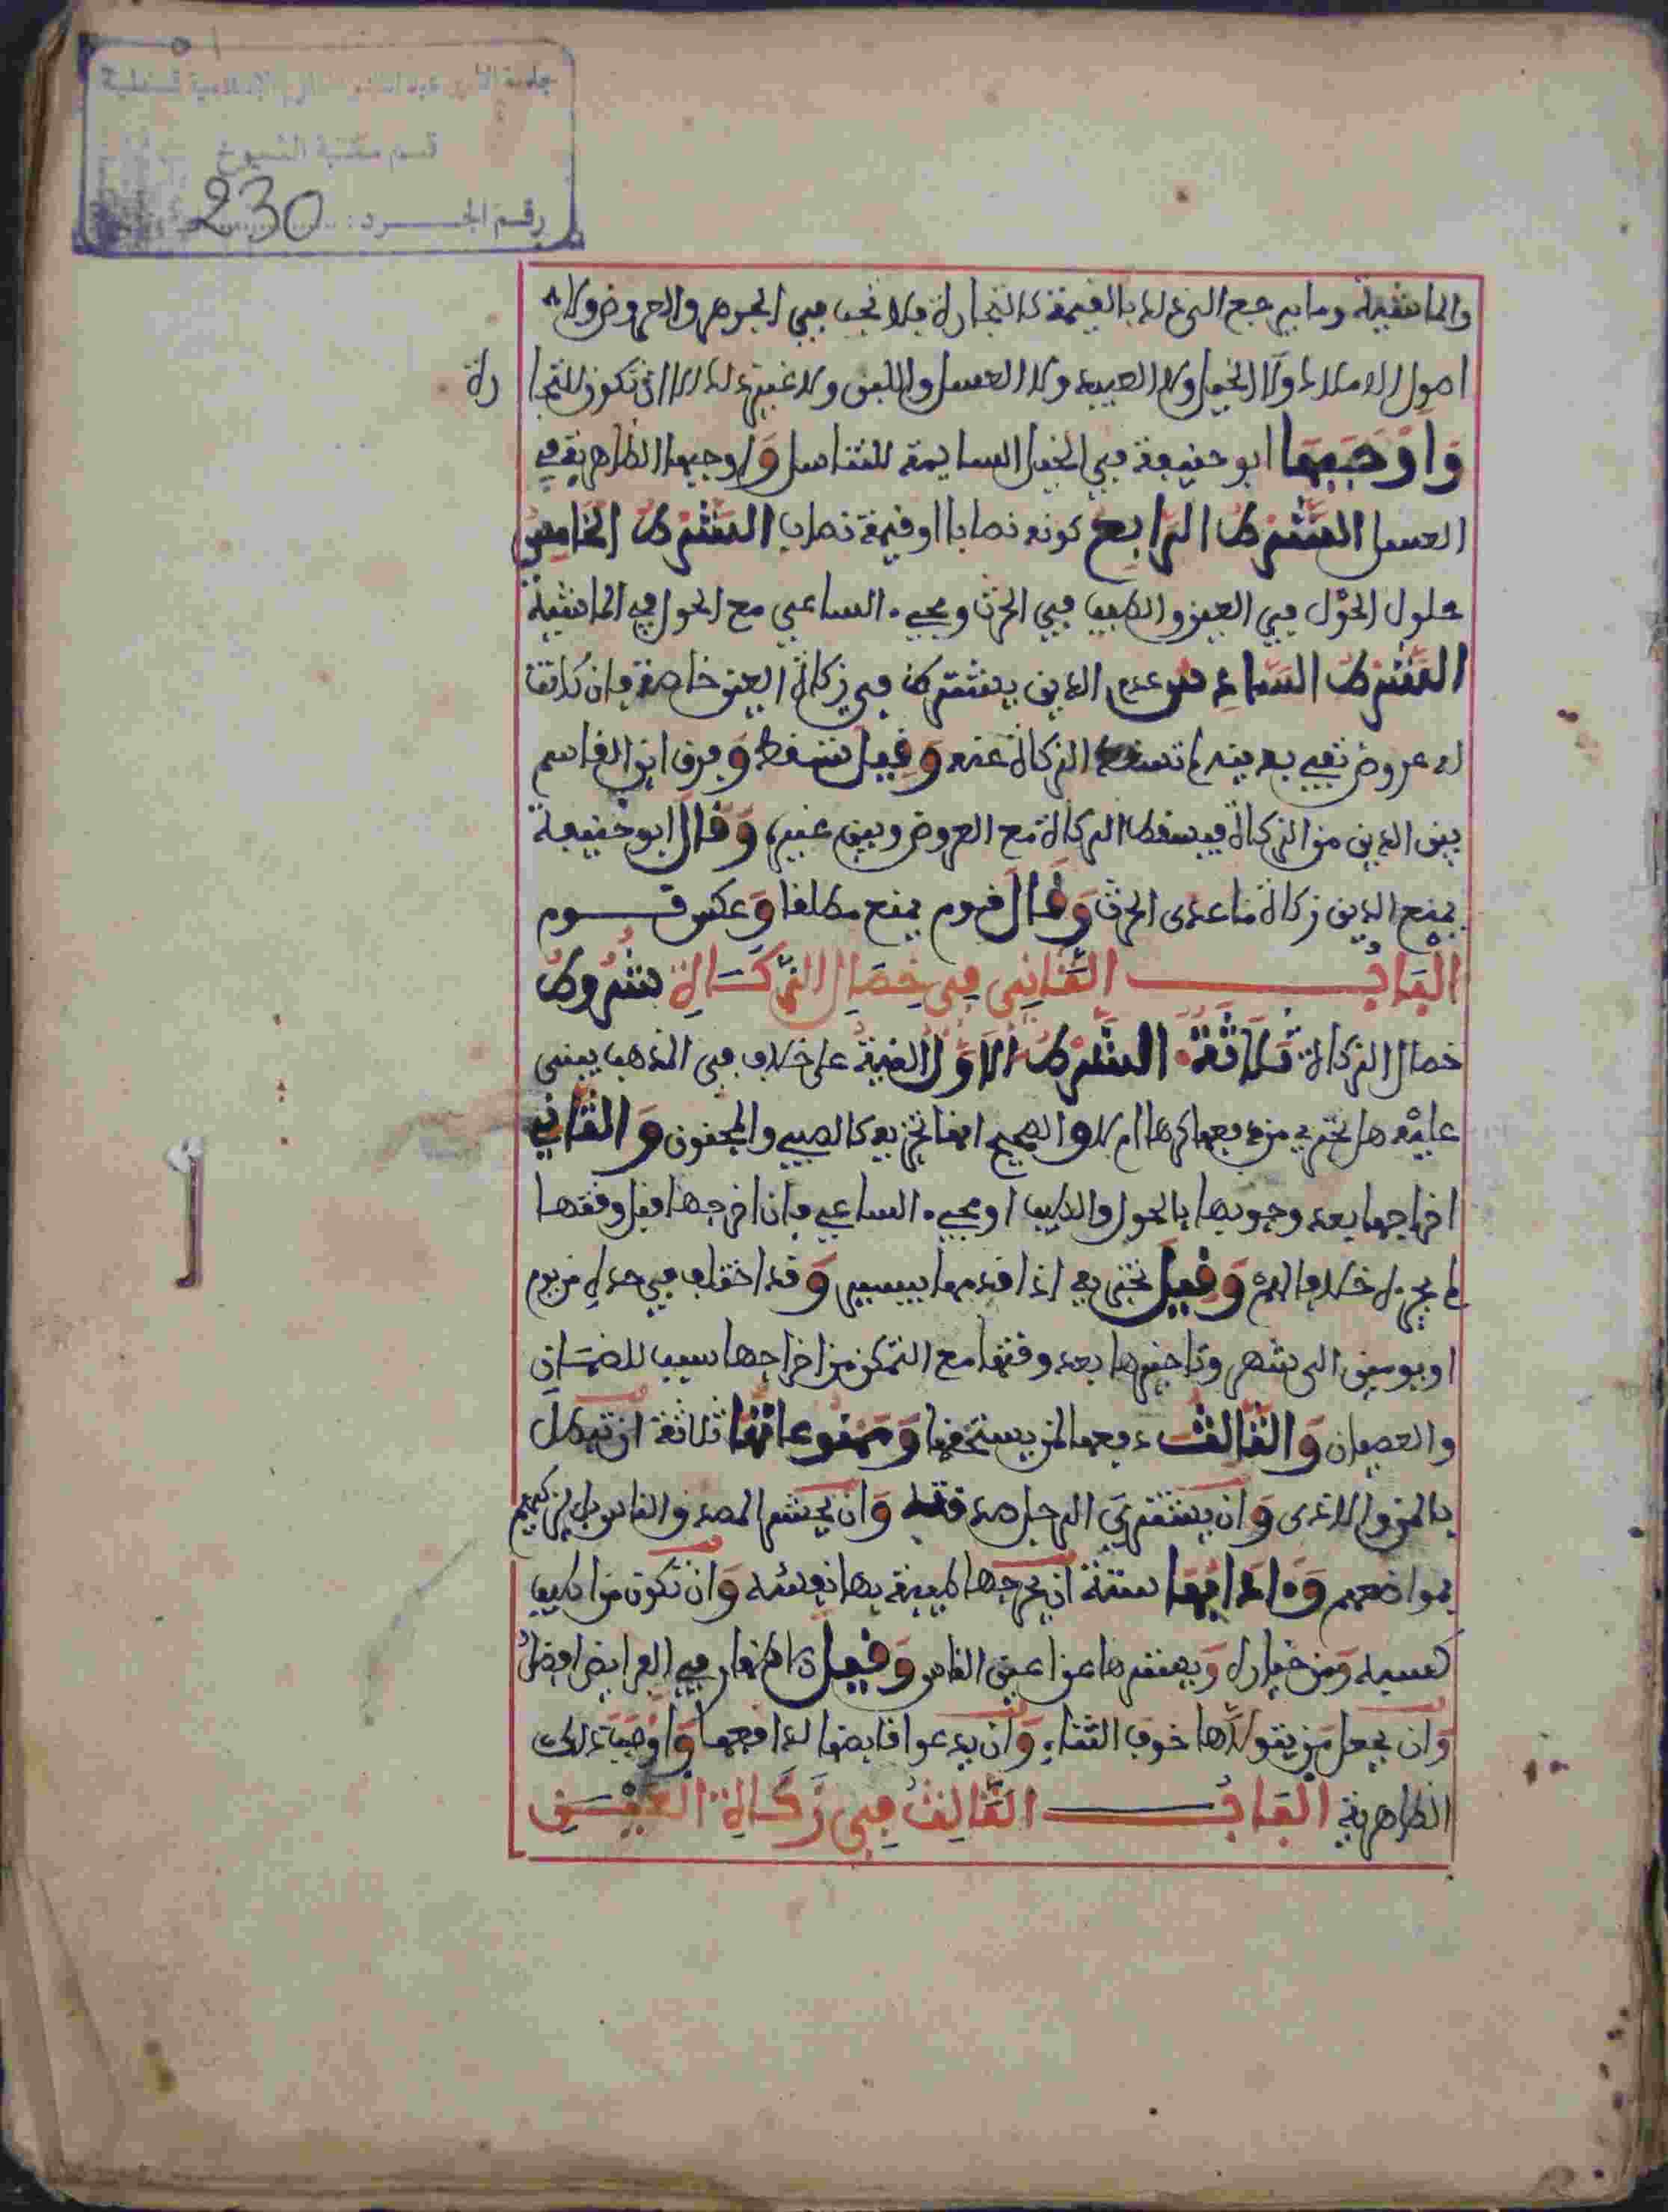 قسم مكتبة الشيوخ
رقم الجرد: 230
والماشية وما يرجع الى ذلك بالقيمة كالتجارة فلا تجب في الجوهر والعروض ولا
اصول الاملاك ولا الخيل ولا العبيد ولا العسل واللبن ولا غير ذلك الا ان تكون للتجا رة
وَاوْجَبَهَا ابو حنيفة في الخيل السايمة للتناسل وَاوجبها الظاهرية في
العسل الشَّرط الرَّابع كونه نصابا او قيمة نصاب الشَّرْط الخَامِس
حلول الحَوْل في العين والطيب في الحرث ومجيء الساعي مع الحول في الماشية
الشَّرْط السَّادِس عدم الدين يشترط في زكاة العين خاصة فان كانت
له عروض تفي بدينه لم تسقط الزكاة عنه وَقيل تسقط وَفرق ابن القاسم
بين الدين من الزكاة فيسقط الزكاة مع العروض وبين غيره وَقال ابو حنيفة
يمنع الدين زكاة ما عدى الحرث وَقال قوم يمنع مطلقا وَعكس قوم
البَابُ الثَّانِي فِي خِصَالِ الزَّكَاةِ شُرُوط
خصال الزكاة ثلاثة الشَّرْط الاوَّل النية على خلاف في المذهب يبنى
عليْه هل تجزي من دفعها كرها ام لا والصحيح انها تجزيه كالصبي والمجنون وَالثاني
اخراجها بعد وجوبها بالحول والطيب او مجيء الساعي فان اخرجها قبل وقتها
لم يجزه خلافا لهم وَقيل تجزيه اذا قدمها بيسير وَقد اختلف في حده من يوم
او يومين الى شهر وتاخيرها بعد وقتها مع التمكن من اخراجها سبب للضمان
والعصيان وَالثالث دفعها لمن يستحقها وَممنوعاتها ثلاثة ان تبطل
بالمن والاذى وَان يشتري الرجل صدقته وَان يحشر المصدق الناس بل يزكيهم
بمواضعهم وَءادابها ستة ان يخرجها طيبة بها نفسه وَان تكون من اطيب
كسبه وَمن خياره وَيسترها عن اعين الناس وَقيل الاظهار في الفرايض افضل
وَان يجعل من يتولاها خوف الثناء وَان يدعوا قابضها لدافعها وَاوْجَبَ ذلك
الظاهرية البَابُ الثَّالِثُ فِي زَكَاةِ العَيْنِ